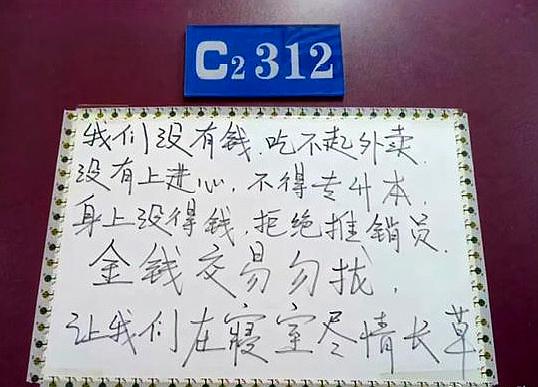 C2 312
我们没有钱.吃不起外卖.
没有上进心.不得专升本.
身上没得钱.拒绝推销员.
金钱交易勿扰,
让我们在寝室尽情长草